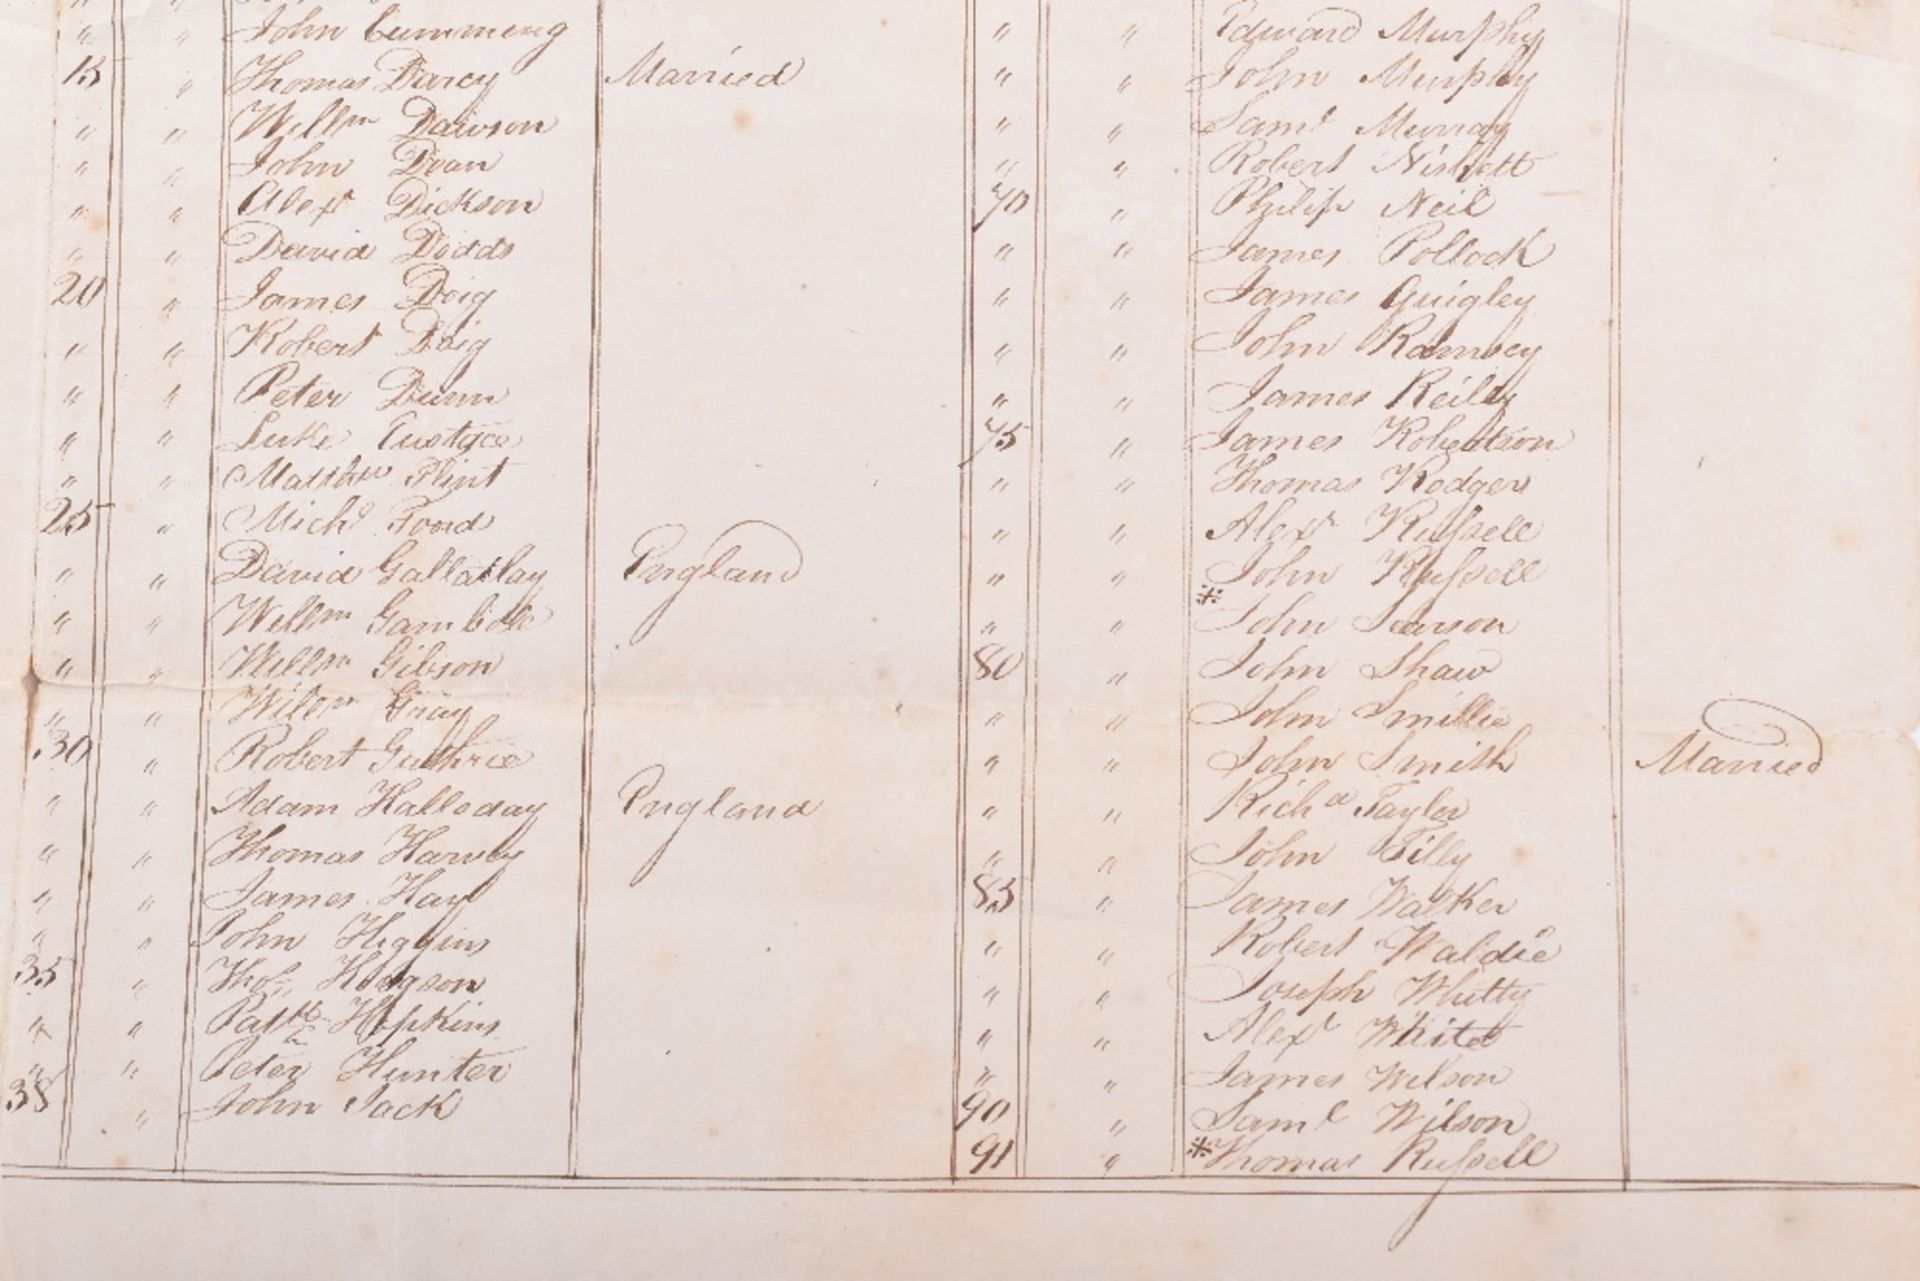 " " John Cumming
15 " Thomas Darcy Married
" " Willm Dawson
" " John Dean
" " Alexr Dickson
" " David Dodds
20 " James Doig
" " Robert Doig
" " Peter Dunn
" " Luke Eustyce
" " Matthw Flint
25 " Michl Foord
" " David Gallatlay England
" " Willm Gamble
" " Willm Gibson
" " Willm Gray
30 " Robert Guthrie
" " Adam Halloday England
" " Thomas Harvey
" " James Hay
" " John Higgins
35 " Thos Hodgson
" " Patk Hopkins
" " Peter Hunter
38 " John Jack
" " Edward Murphy
" " John Murphy
" " Saml Murray
" " Robert Nisbett
70 " Philip Neil
" " James Pollock
" " James Quigley
" " John Ramsey
" " James Reilly
75 " James Robertson
" " Thomas Rodger
" " Alexr Russell
" " John Russell
" " * John Searson
80 " John Shaw
" " John Smillie
" " John Smith Married
" " Richd Taylor
" " John Tilly
85 " James Walker
" " Robert Waldie
" " Joseph Whitty
" " Alexr White
" " James Wilson
90 " Saml Wilson
91 " * Thomas Russell